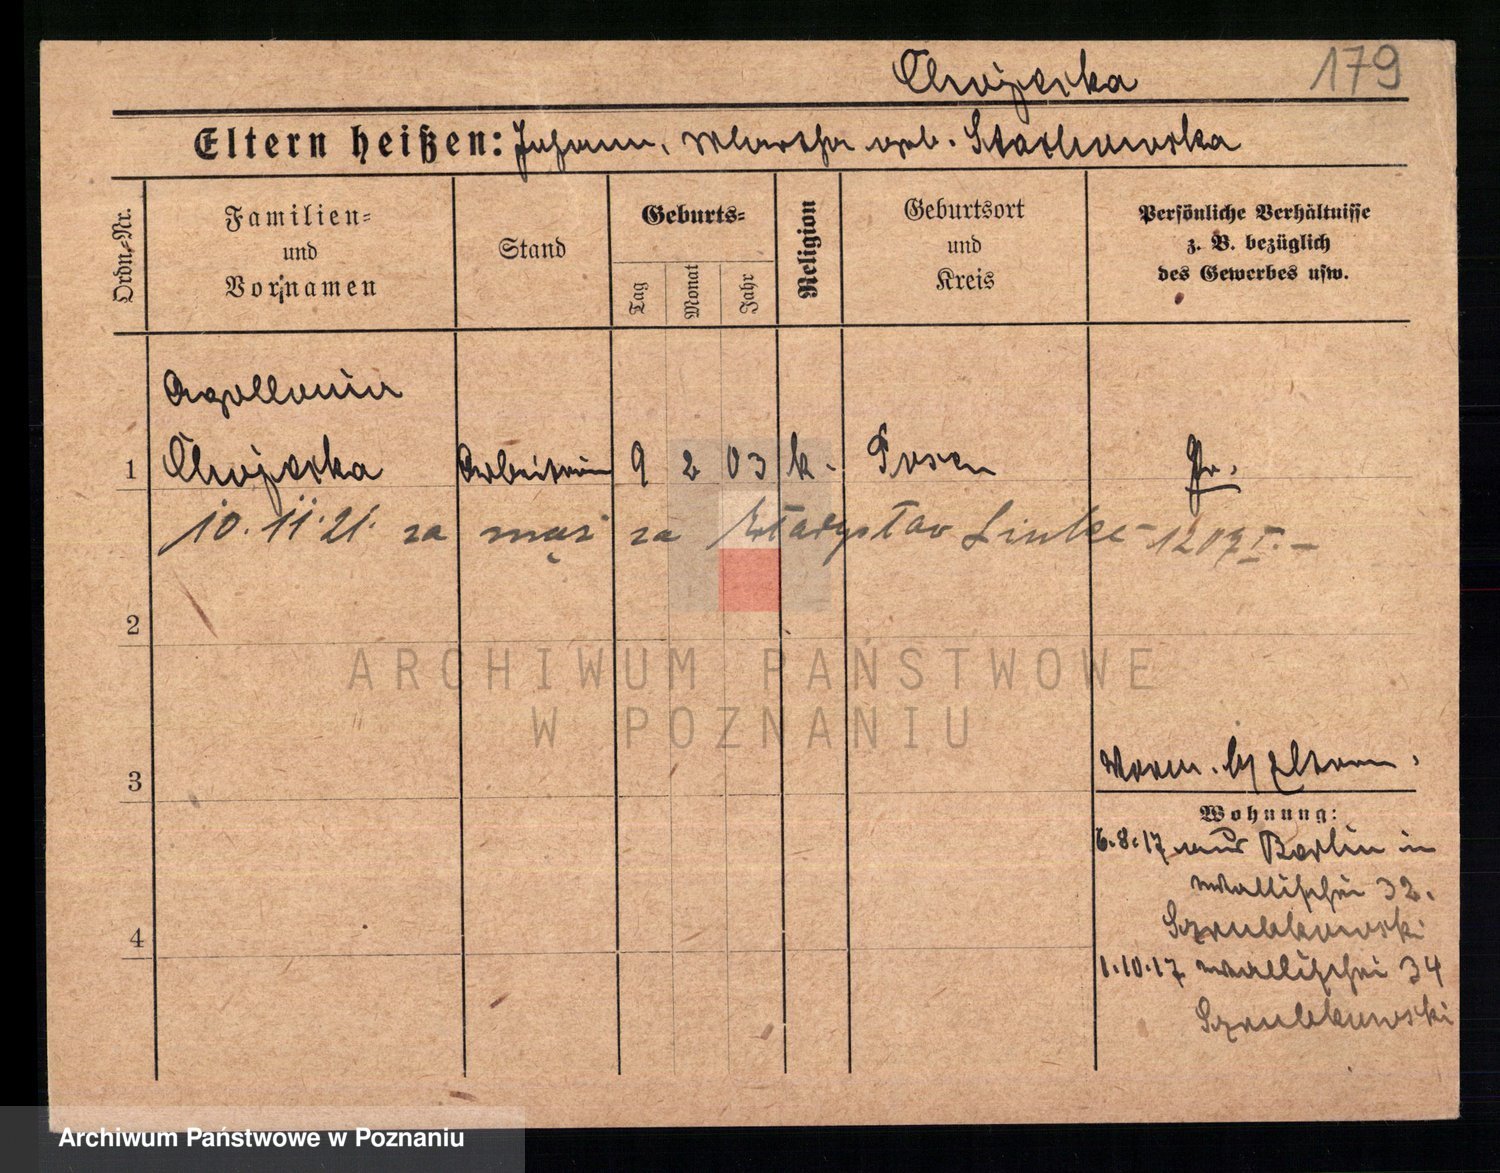 Chojecka 179
Eltern heißen: Johann, Martha geb. Stachowska
Ordn.-Nr.
Familien-
und
Vornamen
Stand
Geburts-
Tag
Monat
Jahr
Religion
Geburtsort
und
Kreis
Persönliche Verhältnisse
z. B. bezüglich
des Gewerbes usw.
Apollonia
1 Chojecka Arbeiterin 9 2 03 k. Posen Pr.
10.11.21. za mąż za Władysław Linke
2
3
4
Eltern.
Wohnung:
6.8.17 aus Berlin in
Wallischei 32.
1.10.17 Wallischei 34
ARCHIWUM PAŃSTWOWE
W POZNANIU
Archiwum Państwowe w Poznaniu